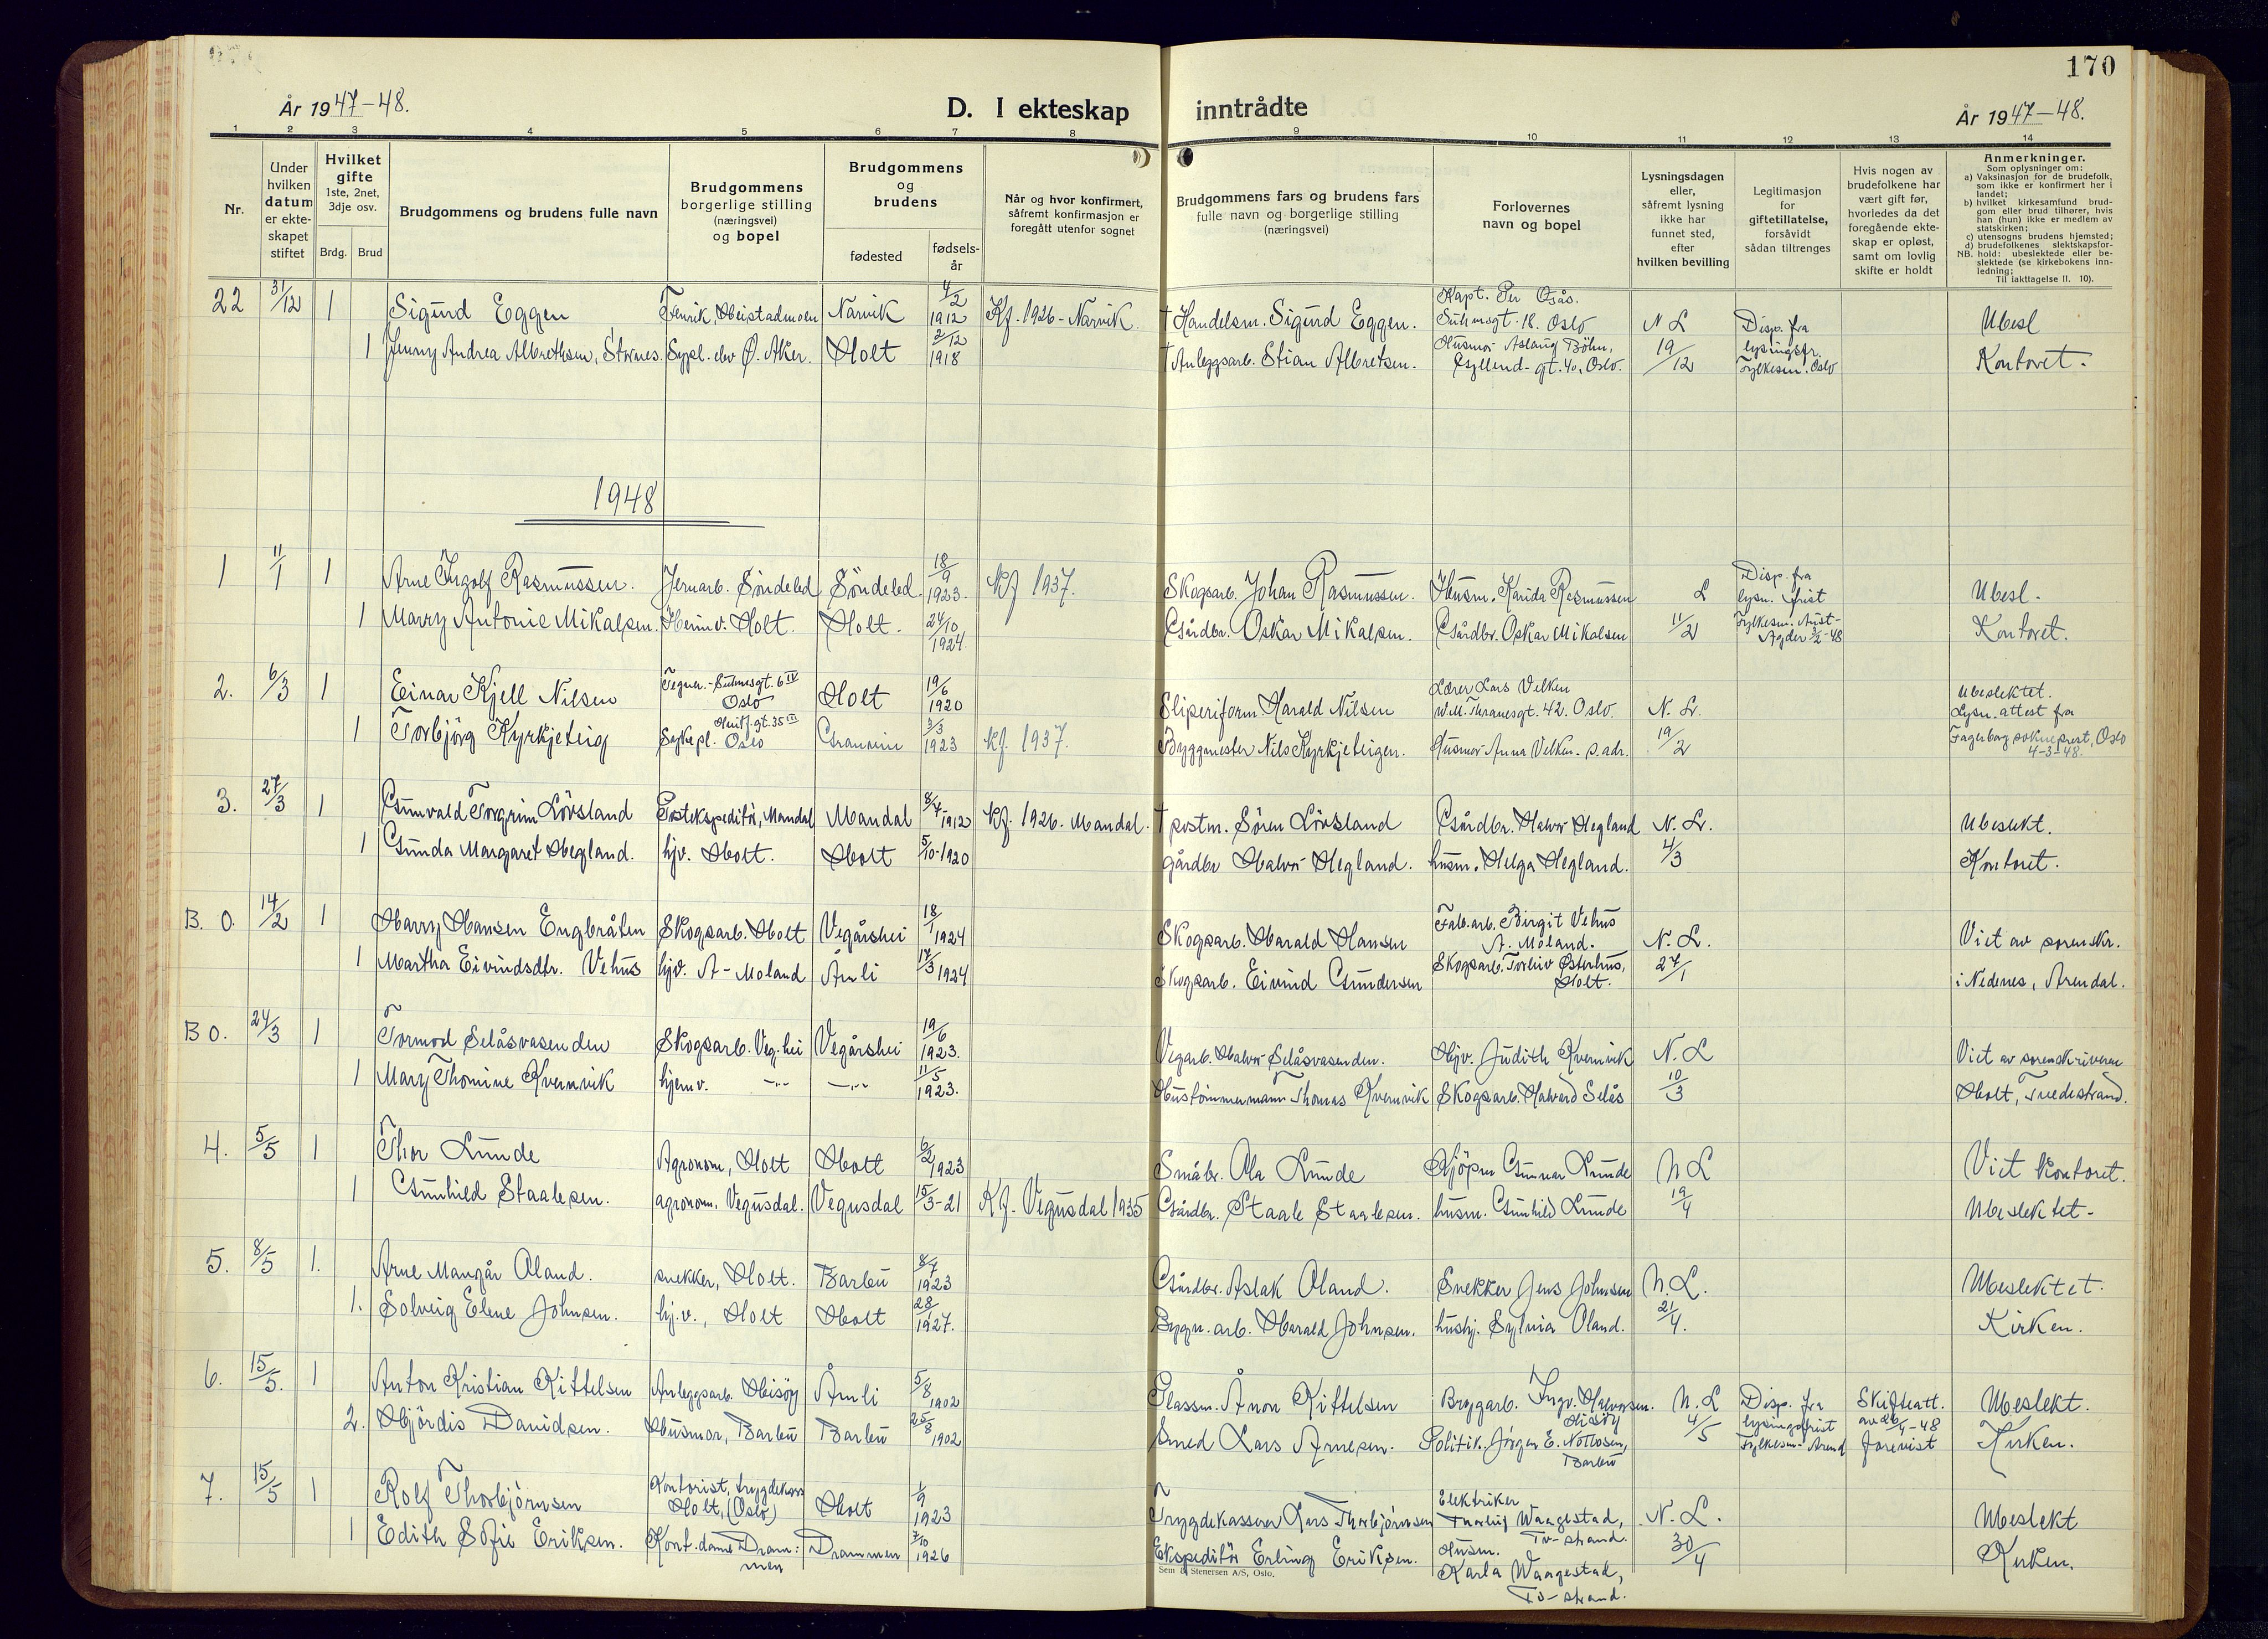 170
År 1947-48.
D. I ekteskap
inntrådte
År 1947-48.
1 2 3 4 5 6 7 8 9 10 11 12 13 14
Nr.
Under hvilken datum er ekte-skapet stiftet
Hvilket gifte 1ste, 2net, 3dje osv.
Brdg. Brud
Brudgommens og brudens fulle navn
Brudgommens borgerlige stilling (næringsvei) og bopel
Brudgommens og brudens
fødested
fødsels-år
Når og hvor konfirmert, såfremt konfirmasjon er foregått utenfor sognet
Brudgommens fars og brudens fars fulle navn og borgerlige stilling (næringsvei)
Forlovernes navn og bopel
Lysningsdagen eller, såfremt lysning ikke har funnet sted, efter hvilken bevilling
Legitimasjon for giftetillatelse, forsåvidt sådan tiltrenges
Hvis nogen av brudefolkene har vært gift før, hvorledes da det foregående ekte-skap er opløst, samt om lovlig skifte er holdt
Anmerkninger.
Som oplysninger om:
a) Vaksinasjon for de brudefolk, som ikke er konfirmert her i landet;
b) hvilket kirkesamfund brud-gom eller brud tilhører, hvis han (hun) ikke er medlem av statskirken;
c) utensogns brudens hjemsted;
d) brudefolkenes slektskapsfor-hold: ubeslektede eller be-slektede (se kirkebokens inn-ledning;
NB.
Til iakttagelse II. 10).
22 31/12 1 Sigurd Eggen Fenrik, Heistadmoen Narvik 4/2 1912 Kf. 1926 - Narvik. † Handelsm. Sigurd Eggen. Kapt. Per Osås. Suhmsgt. 18. Oslo N L Disp. fra Ubesl
1 Jenny Andrea Albrethsen, Strnes. Sypl. elev Ø. Aker. Holt 2/12 1918 † Anleggsarb. Stian Albretsen. Husmor Aslaug Böhn, Gyllend-gt. 40, Oslo. 19/12 lysingsfr. Fylkesm. Oslo Kontoret.
1948
1 11/1 1 Arne Ingolf Rasmussen. Jernarb. Söndeled Söndeled. 18/9 1923. Kf 1937. Skogsarb. Johan Rasmussen. Husm. Karida Rasmussen L Disp. fra lysn. frist Ubesl.
1 Marry Antonie Mikalsen. Heimv. Holt. Holt. 24/10 1924. Gårdbr. Oskar Mikalsen. Gårdbr. Oskar Mikalsen 11/2 Fylkesm. Aust-Agder 3/2-48 Kontoret.
2. 6/3 1 Einar Kjell Nilsen Tegner.-Suhmsgt. 6 IV Oslo Holt 19/6 1920 Sliperiform Harald Nilsen Lærer Lars Velken W.M. Thranesgt. 42. Oslo. N. L. Ubeslektet. Lysn. attest fra
1 Torbjörg Kyrkjeteig Sykepl. Oslo Huitf. gt. 35 III 3/3 1923 Kf. 1937. Byggmester Nils Kyrkjeteigen. Husmor Anna Velken. s. adr. 19/2 Fagerborg sokneprest, Oslo 4-3-48.
3. 27/3 1 Gunvald Torgrim Lövsland Postekspeditör, Mandal Mandal 8/4-1912 Kf. 1926. Mandal. † postm. Sören Lövsland Gårdbr. Halvor Hegland N. L. Ubeslekt.
1 Gunda Margaret Hegland. hjv. Holt. Holt 5/10-1920 gårdbr Halvor Hegland. husm. Helga Hegland. 4/3 Kontoret.
B. O. 14/2 1 Harry Hansen Engbråten Skogsarb. Holt Vegårshei 18/1 1924 Skogsarb. Harald Hansen Fab. arb. Birgit Vehus A. Moland. N. L. Viet av sorenskr.
1 Martha Eivindsdtr. Vehus hjv. A-Moland Åmli 17/3 1924 Skogsarb. Eivind Gundersen Skogsarb. Torleiv Østerhus, Holt. 27/1 i Nedenes, Arendal.
B O. 24/3 1 Tormod Selåsvasenden Skogsarb. Veg.hei Vegårshei 19/6 1923. Vegarb. Halvor Selåsvasenden. Hjv. Judith Kvernvik N. L Viet av sorenskriveren
1 Mary Thomine Kvernvik hjemv. -"- -"- 11/5 1923. Hustömmermann Thomas Kvernvik Skogsarb. Halvard Selås 10/3 Holt, Tvedestrand.
4. 5/5 1 Thor Lunde Agronom, Holt Holt 6/2 1923 Småbr. Ola Lunde Kjöpm Gunnar Lunde N L Viet Kontoret.
1 Gunhild Staalesen. agronom, Vegusdal. Vegusdal 15/3-21 Kf. Vegusdal 1935 Gårdbr. Staale Staalesen. husm. Gunhild Lunde 19/4 Ubeslektet-
5. 8/5 1. Arne Mangår Oland. snekker, Holt. Barbu 8/7 1923 Gårdbr. Aslak Oland. Snekker Jens Johnsen N. L. Ubeslektet.
1. Solveig Elene Johnsen. hj.v., Holt Holt 28/1 1927. Bygn. arb. Harald Johnsen. hushj. Sylvia Oland. 21/4. Kirken.
6. 15/5. 1 Anton Kristian Kittelsen Anleggsarb. Hisöy Åmli 5/8 1902 Plassm. Ånon Kittelsen Bryggarb. Ingv. Halvorsen. Hisöy N. L Disp. fra Skifteatt. Ubeslekt.
2. Hjördis Davidsen. Husmor, Barbu Barbu 25/8 1902 Smed Lars Arnesen. Politik. Jörgen E. Nottosen, Barbu 4/5 lysingsfrist Fylkesm-Arend av 26/4-48 forevist Kirken.
7. 15/5 1 Rolf Thorbjörnsen Kontorist, trygdekass Holt, (Oslo) Holt 1/9 1923 Trygdekasserer Lars Thorbjörnsen Elektriker Thorleif Waagestad, Tv-strand. N. L. Ubeslekt
1 Edith Sofie Eriksen. Kont. dame Dram:men Drammen 7/10 1926 Ekspeditör Erling Eriksen. Husm. Karla Waagestad, Tv-strand. 30/4 Kirken.
Sem & Stenersen A/S, Oslo.